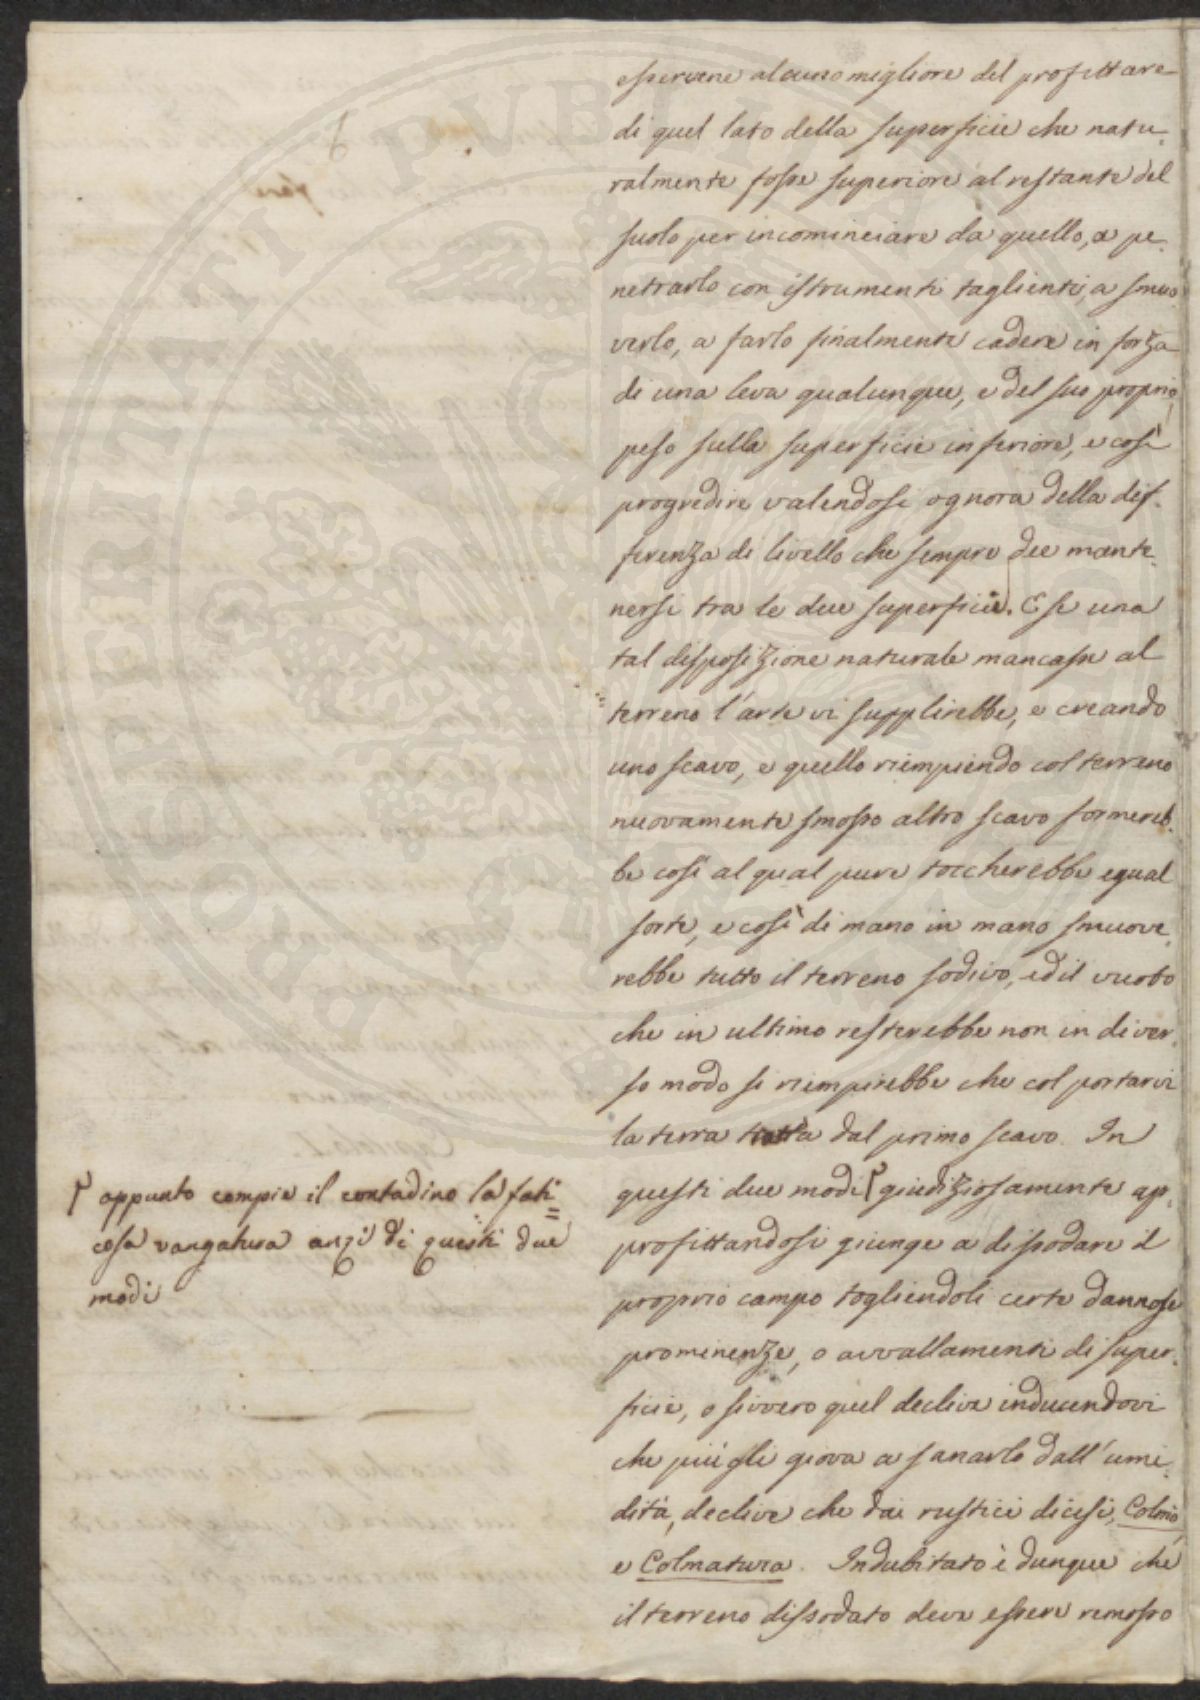 esservene alcuno migliore del profittare
di quel lato della superficie che natu-
ralmente fosse superiore al restante del
suolo per incominciare da quello, a pe-
netrarlo con istrumenti taglienti, a smuo-
verlo, a farlo finalmente cadere in forza
di una leva qualunque, e del suo proprio
peso sulla superficie inferiore, e così
progredire valendosi ognora della dif-
ferenza di livello che sempre dee mante-
nersi tra le due superficie. E se una
tal disposizione naturale mancasse al
terreno l'arte vi supplirebbe, e creando
uno scavo, e quello riempiendo col terreno
nuovamente smosso altro scavo formereb-
be così al qual pure toccherebbe egual
sorte, e così di mano in mano smuove-
rebbe tutto il terreno sodivo, ed il vuoto
che in ultimo resterebbe non in diver-
so modo si riempirebbe che col portarvi
la terra tratta dal primo scavo. In
questi due modi giudiziosamente ap-
profittandosi giunge a dissodare il
proprio campo togliendoli certe dannose
prominenze, o avvallamenti di super-
ficie, o sivvero quel declive inducendovi
che più gli giova a sanarlo dall'umi-
dità, declive che dai rustici dicesi, Colmo,
e Colmatura. Indubitato è dunque che
il terreno dissodato deve essere remosso
appunto compie il contadino la fati=
cosa vangatura anzi di questi due
modi
PROSPERINATI PUBLICAE